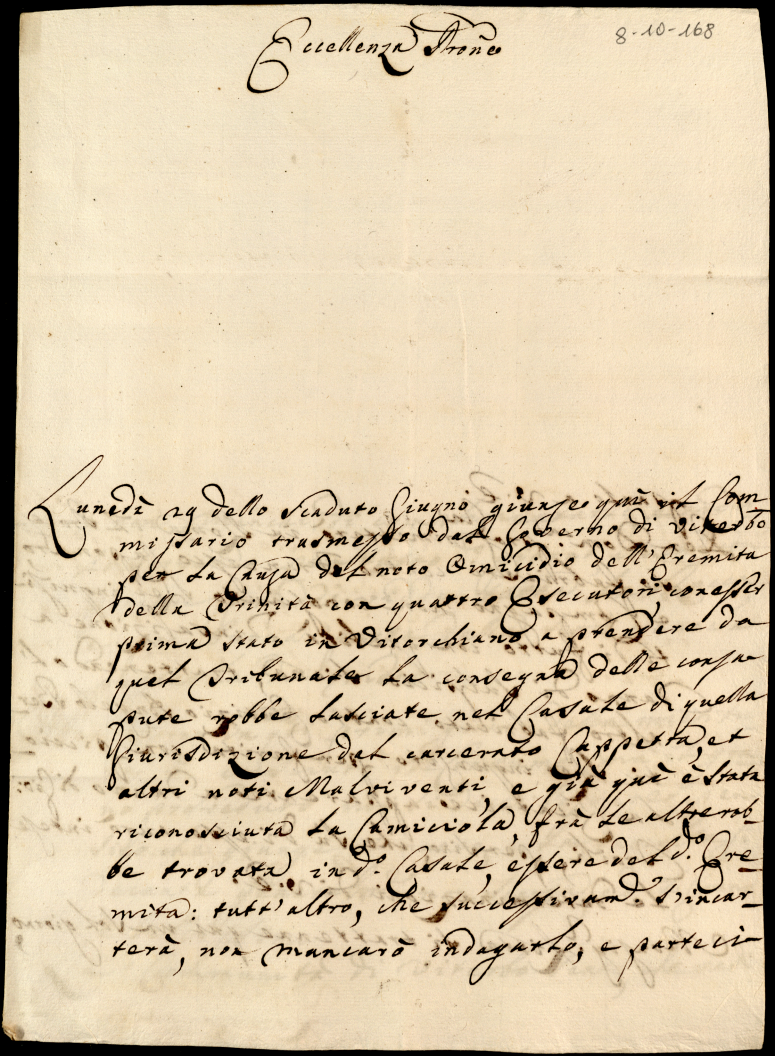 8-10-168
Eccellenza Pron̄e
Lunedì 29 dello scaduto Giugno giunse quì il Com-
missario trasmesso dal Governo di Viterbo
per la Causa del noto Omicidio dell'Eremita
della Trinità con quattro Esecutori con esser
prima stato in Vitorchiano a prendere da
quel Tribunale la consegna delle consa-
pute robbe lasciate nel Casale di quella
Giurisdizione dal carcerato Cappetta, et
altri noti Malviventi, e già quì è stata
riconosciuta la Camiciola, frà le altre rob-
be trovata in d.º Casale, essere del d.º Ere-
mita: tutt'altro, che successivam.e s'incar-
terà, non mancarò indagarlo, e parteci-